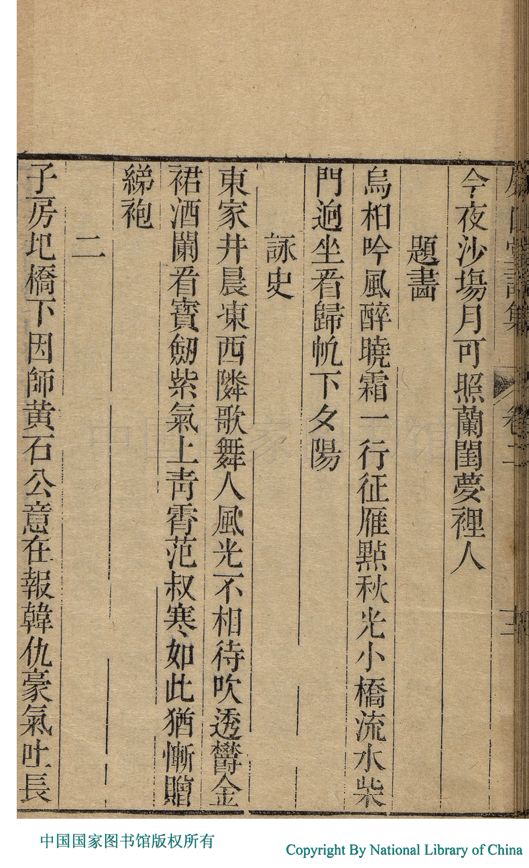 今夜沙塲月可照蘭閨夢裡人
題畵
烏桕吟風醉曉霜一行征雁點秋光小橋流水柴
門逈坐看歸帆下夕陽
詠史
東家井晨凍西隣歌舞人風光不相待吹透欝金
裙酒闌看寶劒紫氣上靑霄范叔寒如此猶慚贈
綈袍
二
子房圯橋下因師黄石公意在報韓仇豪氣吐長
卷二
中国国家图书馆版权所有
Copyright By National Library of China